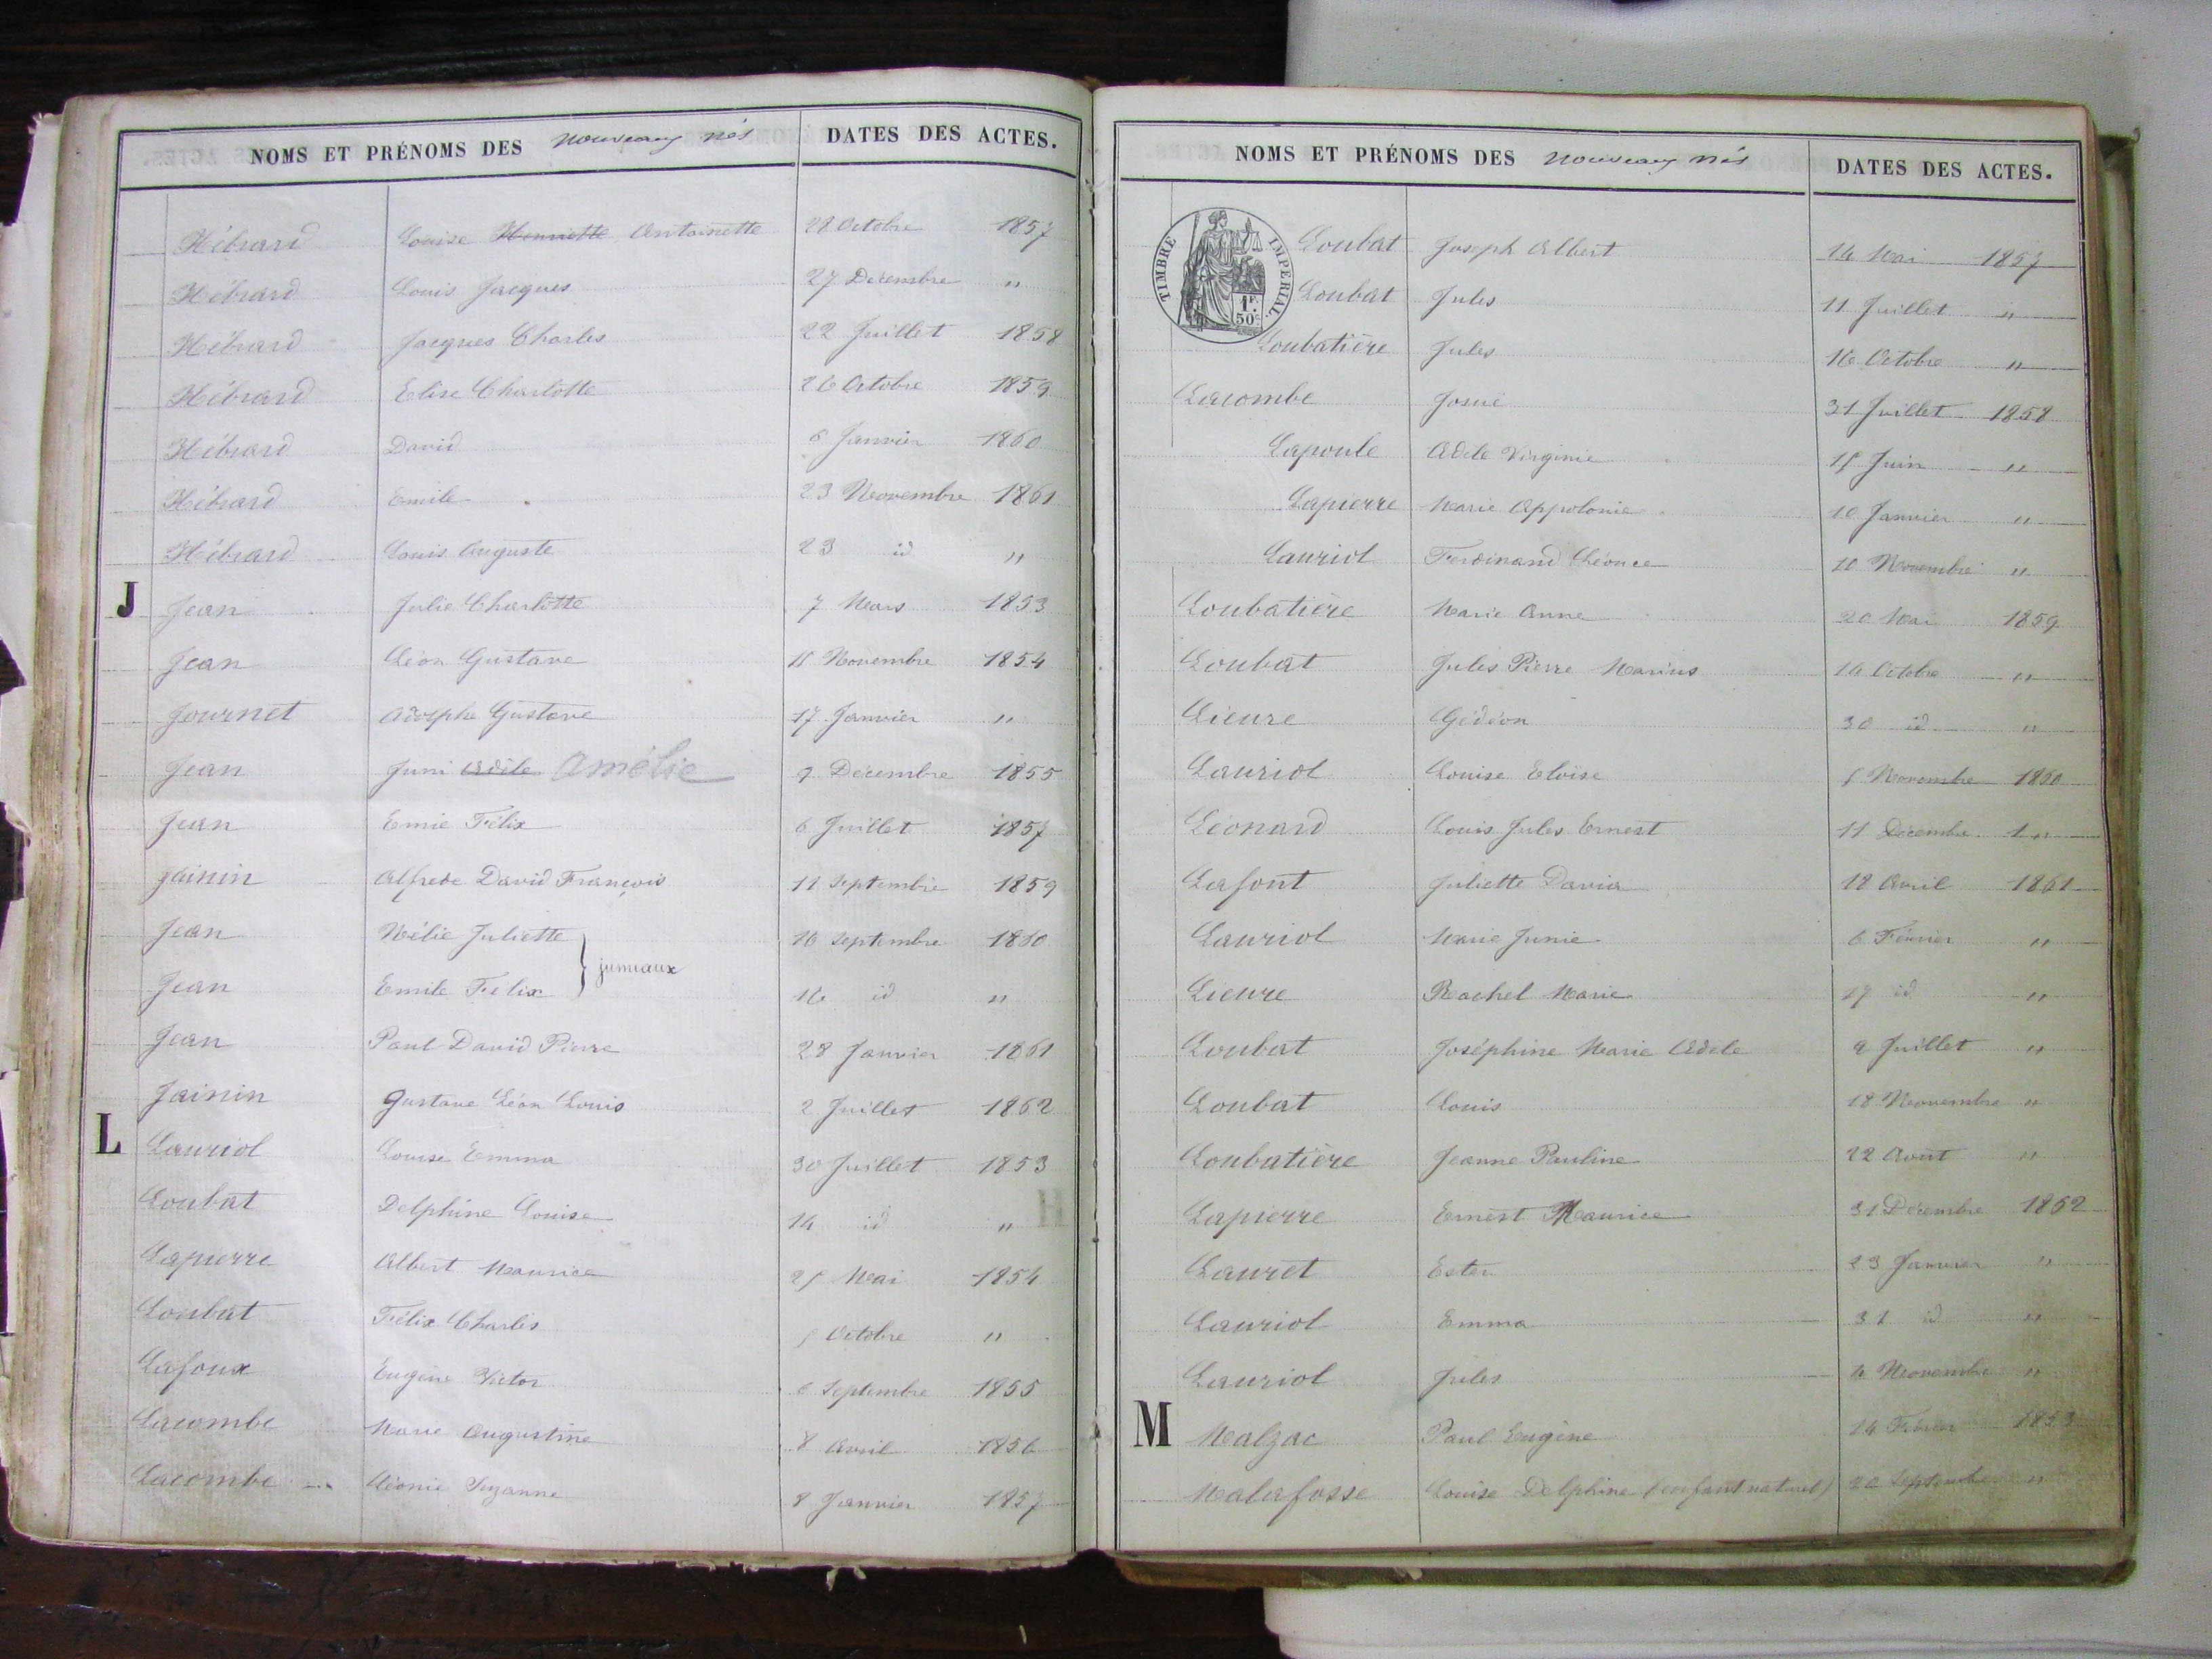 NOMS ET PRÉNOMS DES nouveaux nés DATES DES ACTES.
Hébrard Louise Henriette Antoinette 28 Octobre 1857
Hébrard Louis Jacques 27 Décembre "
Hébrard Jacques Charles 22 Juillet 1858
Hébrard Elise Charlotte 26 Octobre 1859
Hébrard David 6 Janvier 1860
Hébrard Emile 23 Novembre 1861
Hébrard Louis Auguste 23 id "
J Jean Julie Charlotte 7 Mars 1853
Jean Léon Gustave Novembre 1854
Journet Adolphe Gustave 17 Janvier "
Jean Juni Adèle Amélie 9 Décembre 1855
Jean Emie Félix 6 Juillet 1857
Jainin Alfrede David François 11 Septembre 1859
Jean Mélie Juliette 16 Septembre 1860
jumeaux
Jean Emile Félix 16 id "
Jean Paul David Pierre 28 Janvier 1861
Jainin Gustave Léon Louis 2 Juillet 1862
L Lauriol Louise Emma 30 Juillet 1853
Loubat Delphine Louise 14 id "
Lapierre Albert Maurice Mai 1854
Loubat Félix Charles Octobre "
Lafoux Eugène Victor 6 Septembre 1855
Lacombe Marie Augustine 8 Avril 1856
Lacombe Léonie Suzanne 8 Janvier 1857
NOMS ET PRÉNOMS DES nouveaux nés DATES DES ACTES.
TIMBRE IMPERIAL.
1F. 50c
Loubat Joseph Albert 14 Mai 1857
Loubat Jules 11 Juillet "
Loubatière Jules 16 Octobre "
Lacombe Josué 31 Juillet 1858
Lapoule Adèle Virginie Juin "
Lapierre Marie Appolonie 10 Janvier "
Lauriol Ferdinand Léonce 10 Novembre "
Loubatière Marie Anne 20 Mai 1859
Loubat Jules Pierre Marius 14 Octobre "
Lieure Gédéon 30 id "
Lauriol Louise Eloïse Novembre 1860
Léonard Louis Jules Ernest 11 Décembre "
Lafont Juliette Davia 18 Avril 1861
Lauriol Marie Junie 6 Février "
Lieure Rachel Marie 17 id "
Loubat Joséphine Marie Adèle 9 Juillet "
Loubat Louis 18 Novembre "
Loubatière Jeanne Pauline 22 Août "
Lapierre Ernest Maurice 31 Décembre 1862
Lauret Ester 23 Janvier "
Lauriol Emma 31 id "
Lauriol Jules 4 Novembre "
M Malzac Paul Eugène 14 Février 1853
Malafosse Louise Delphine (enfant naturel) 20 Septembre "